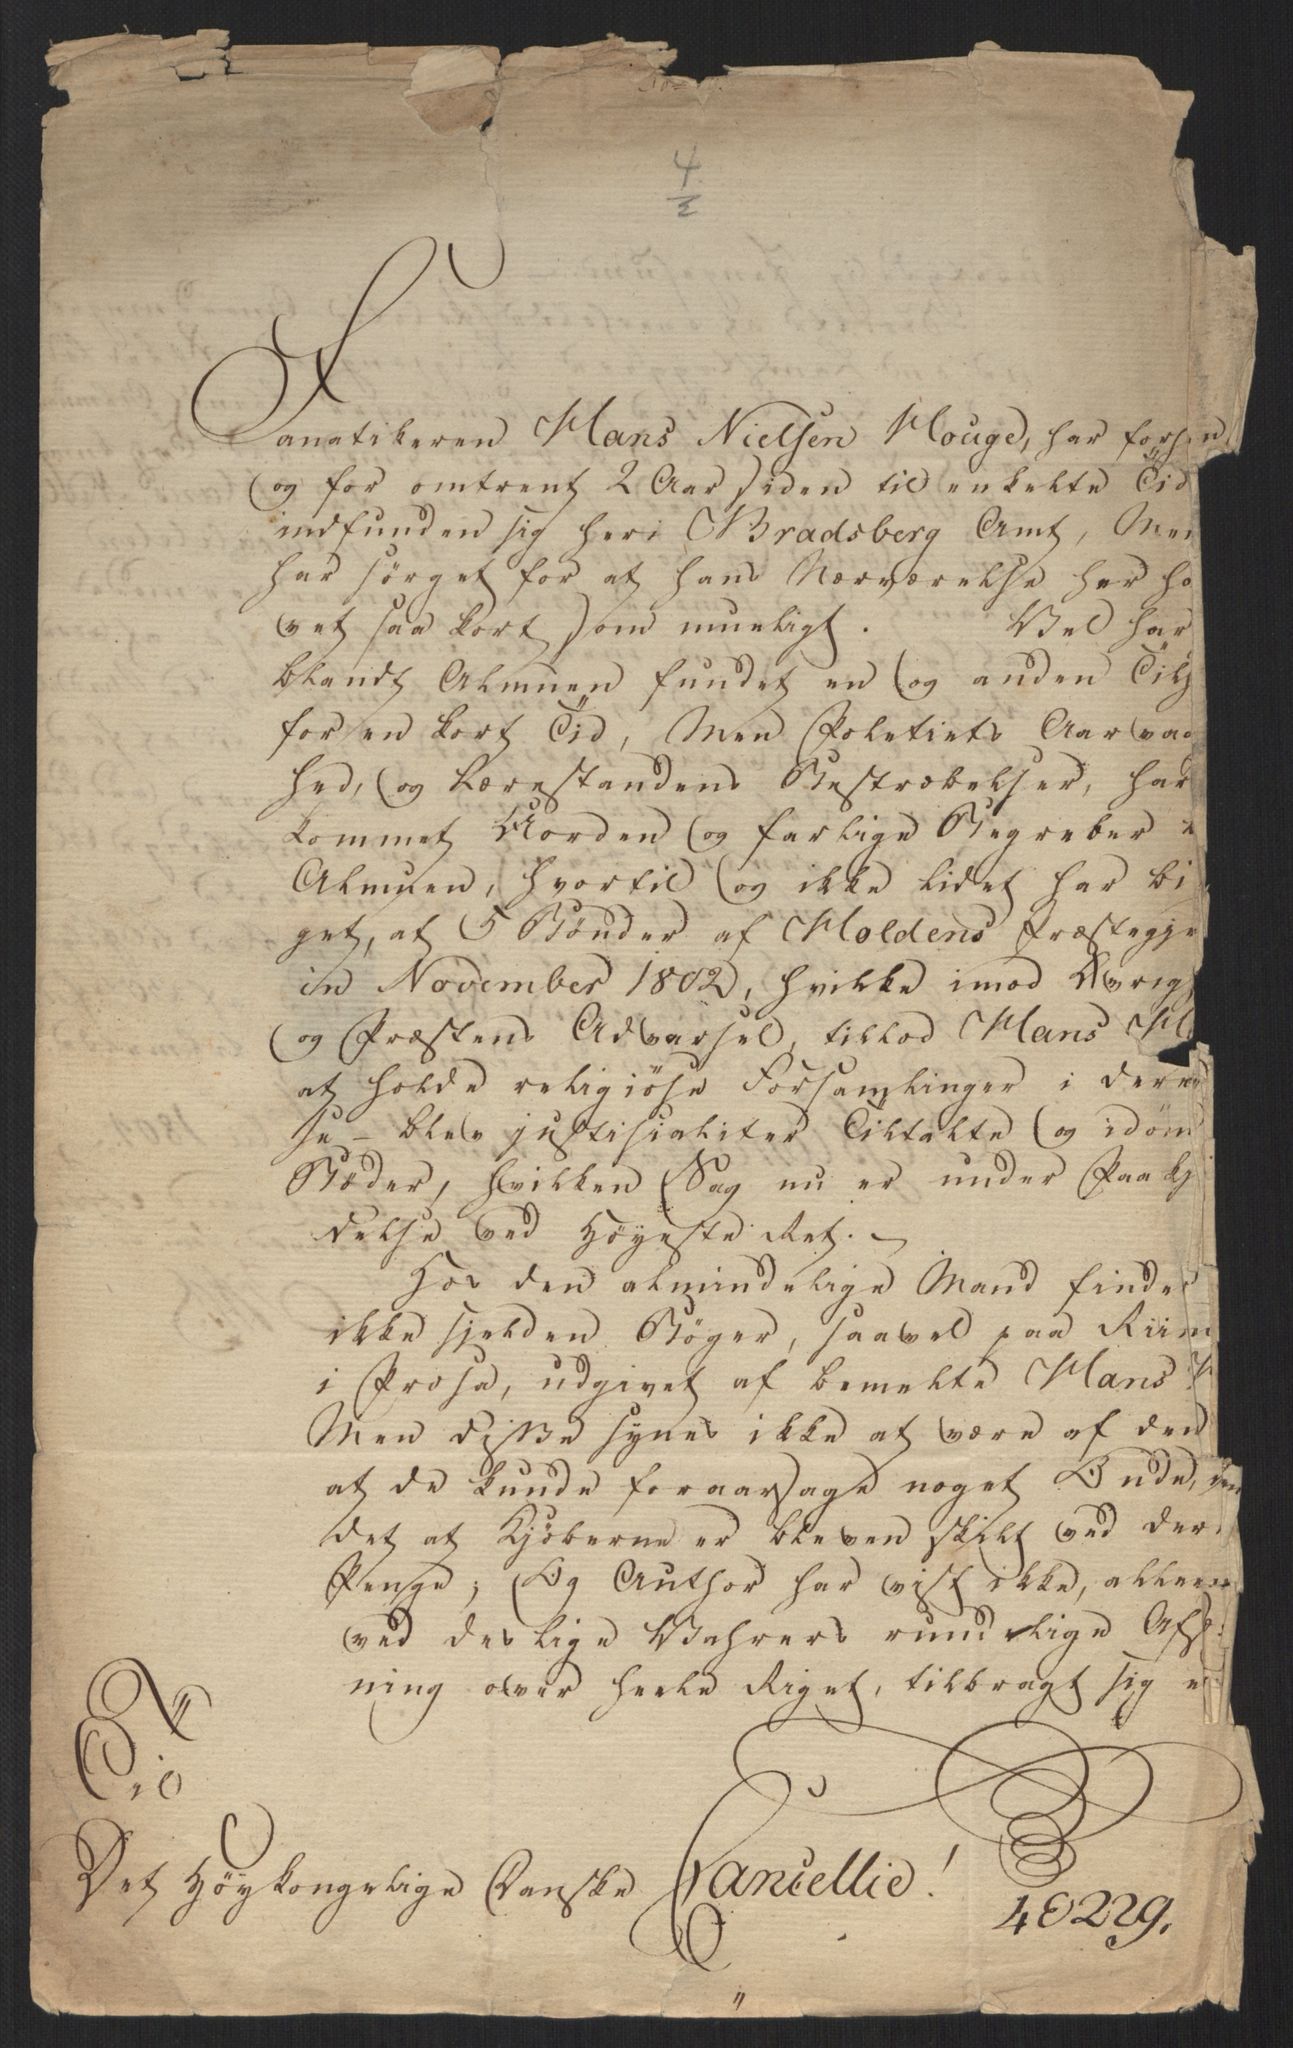 4
2
Fanatikeren Hans Nielsen Houge, har forhen
og for omtrent 2 Aar siden til enkelte Tid
indfunden sig her i Bradsberg Amt, Men
har sörget for at hans Nærværelse her ha
vet saa kort som mueligt. Vel har
blandt Almuen fundet en og anden Tilh
for en kort Tid, Men Poletiets Aarvaa
hed, og Lærestandens Bestræbelser, har
kommet Uorden og farlige Begreber
Almuen, hvortil og ikke lidet har bi
get, at 5 Bönder af Holdens Præstegje
in November 1802, hvilke imod Øvrigh
og Præstens Advarsel, tillod Hans H
at holde religiöse Forsamlinger i deres
se - blev justisialiter Tiltalte og idöm
Böder, hvilken Sag nu er under Paakj
delse ved Höyeste Ret.
Hos den almindelige Mand findes
ikke sjelden Böger, saavel paa Riim
i Prosa, udgivet af bemelte Hans H
Men disse synes ikke at være af den
at de kunde foraarsage noget Onde,
det at Kjöberne er bleven skilt ved deres
Penge; Og Author har vist ikke, alleene
ved deslige Vahrers rundelige Afs
ning over heele Riget, tilbragt sig e
Til
Det Höykongelige Danske Cancellie!
40229.